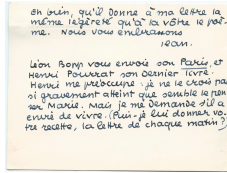 ou bien, qu'il donne à ma lettre la
même légèreté qu'à la vôtre le poè-
me. Nous vous embrassons
Jean.
Léon Bopp vous envoie son Paris, et
Henri Pourrat son dernier livre.
Henri me préoccupe: je ne le crois pas
si gravement atteint que semble le pen-
ser Marie. Mais je me demande s'il a
envie de vivre. (Puis-je lui donner vo-
tre recette, la lettre de chaque matin?)